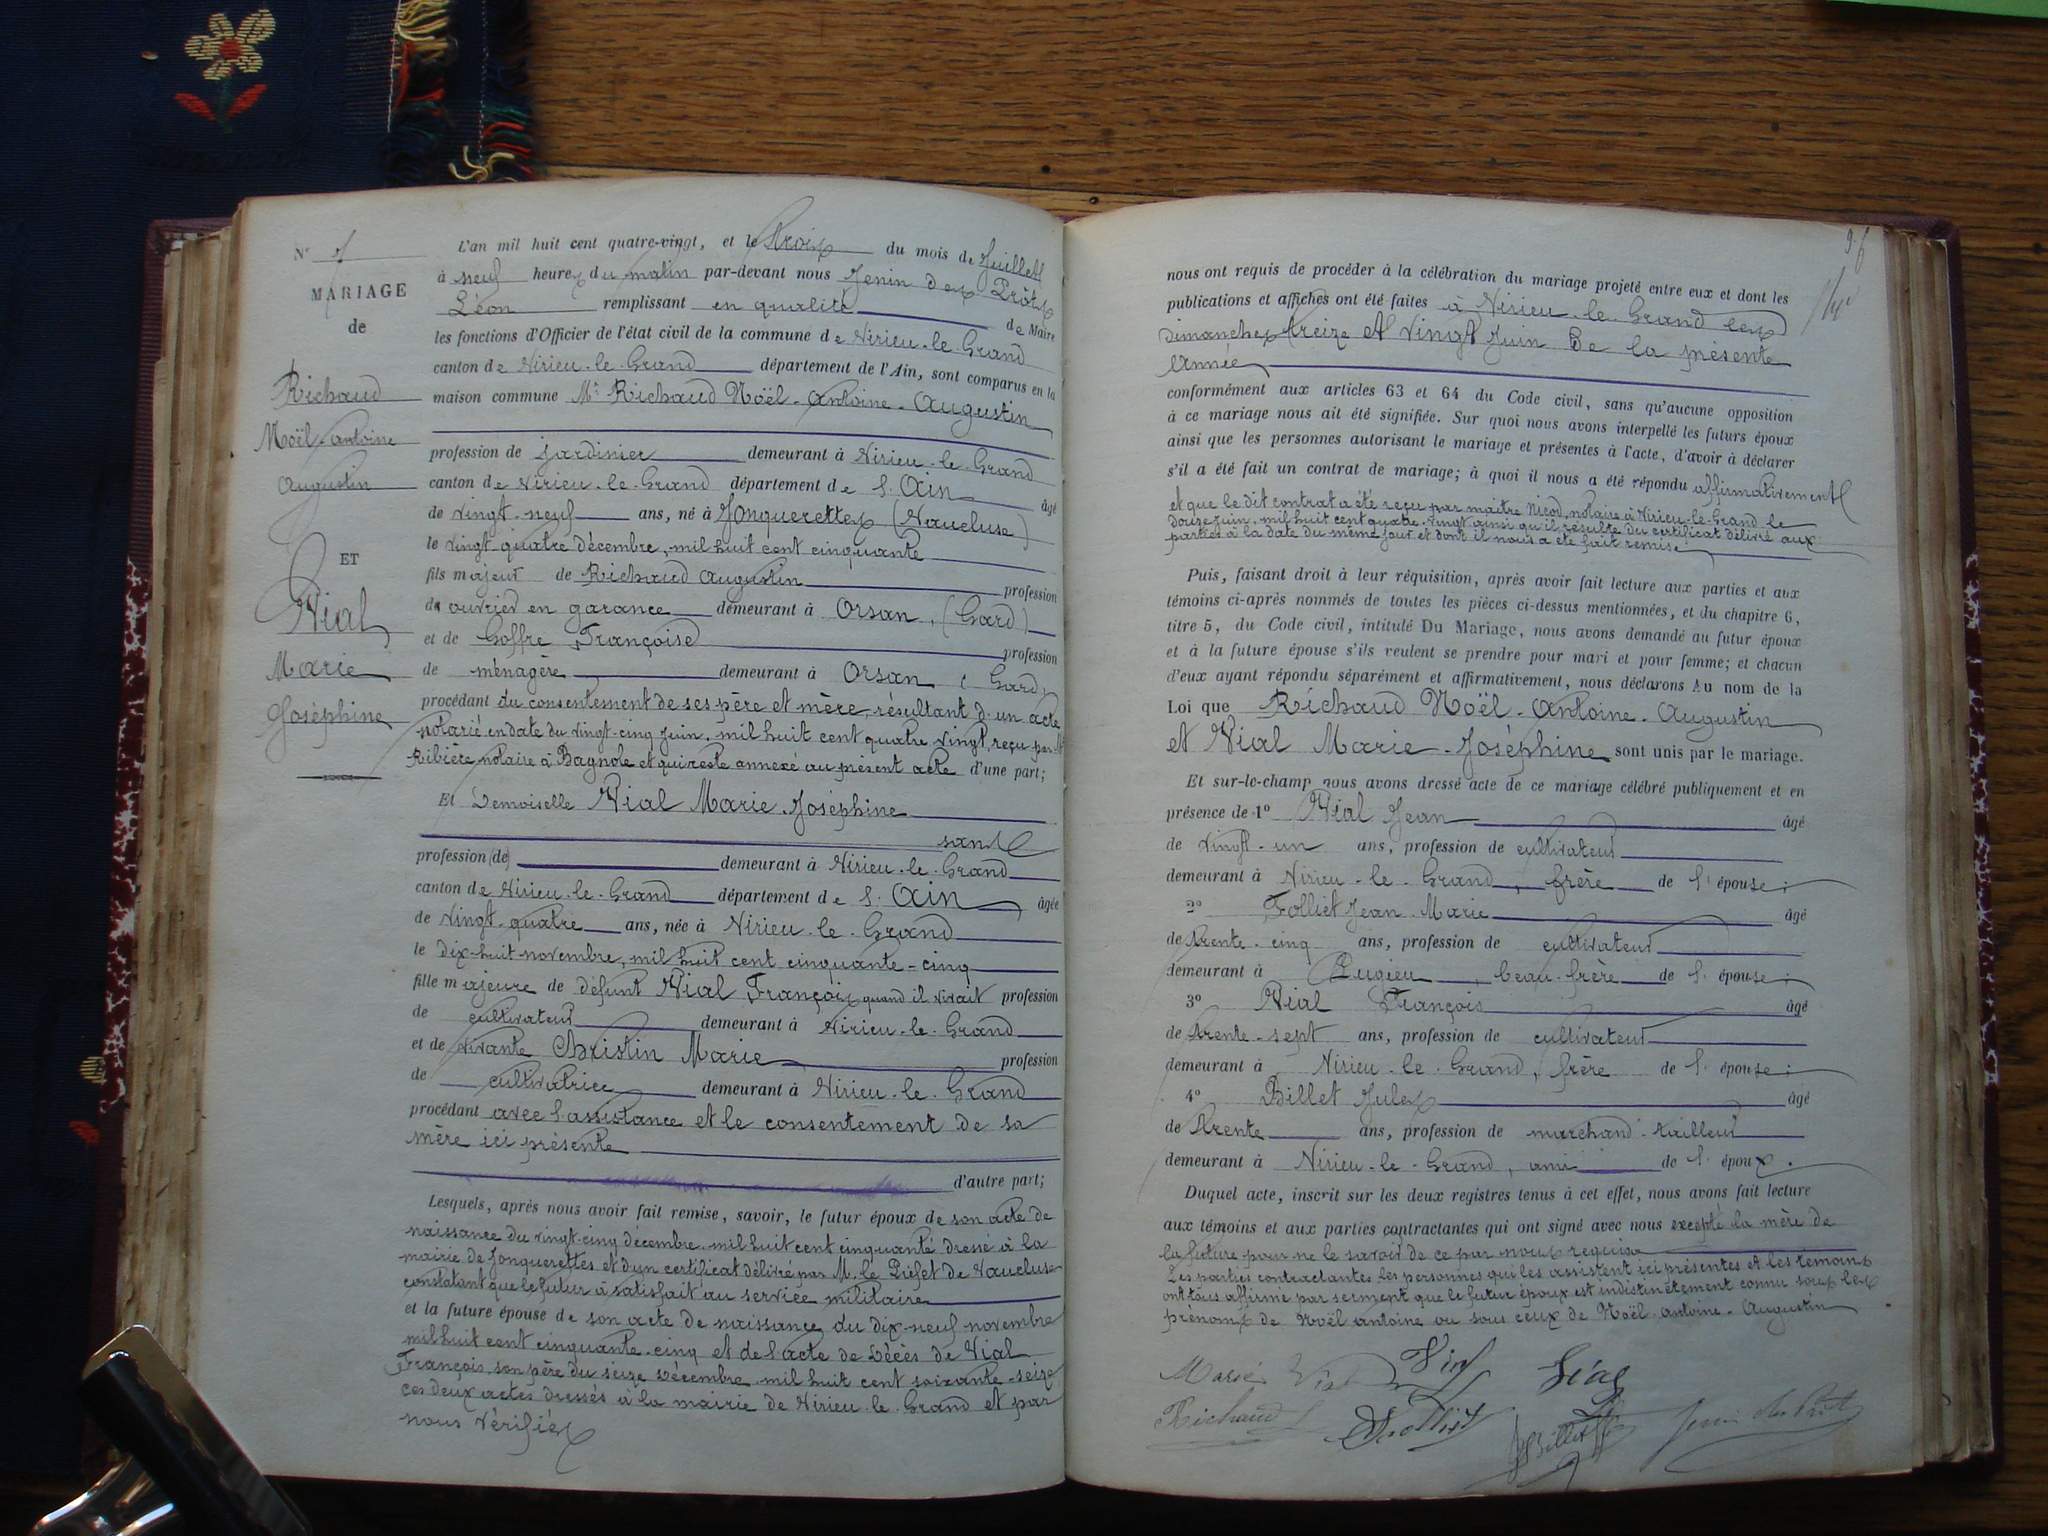 N° 7
MARIAGE
de
Richaud
Noël-Antoine
Augustin
ET
Vial
Marie
Joséphine
L'an mil huit cent quatre-vingt, et le trois du mois de Juillet
à neuf heures du matin par-devant nous Jenin des Prôts
Léon remplissant en qualité de Maire
les fonctions d'Officier de l'état civil de la commune de Virieu-le-Grand
canton de Virieu-le-Grand département de l'Ain, sont comparus en la
maison commune Mr Richaud Noël-Antoine-Augustin
profession de Jardinier demeurant à Virieu-le-Grand
canton de Virieu-le-Grand département de l'Ain âgé
de vingt-neuf ans, né à Jonquerettes (Vaucluse)
le vingt quatre décembre, mil huit cent cinquante
fils majeur de Richaud Augustin profession
de ouvrier en garance demeurant à Orsan, (Gard)
et de Goffre Françoise profession
de ménagère demeurant à Orsan (Gard)
procédant du consentement de ses père et mère, résultant d'un acte
notarié en date du vingt-cinq Juin, mil huit cent quatre vingt, reçu par
Ribière notaire à Bagnole et qui reste annexé au présent acte d'une part;
Et Demoiselle Vial Marie Joséphine
sans
profession (de) demeurant à Virieu-le-Grand
canton de Virieu-le-Grand département de l'Ain âgée
de vingt-quatre ans, née à Virieu-le-Grand
le dix-huit novembre, mil huit cent cinquante-cinq
fille majeure de défunt Vial François quand il vivait profession
de cultivateur demeurant à Virieu-le-Grand
et de vivante Christin Marie profession
de cultivatrice demeurant à Virieu-le-Grand
procédant avec l'assistance et le consentement de sa
mère ici présente
d'autre part;
Lesquels, après nous avoir fait remise, savoir, le futur époux de son acte de
naissance du vingt-cinq décembre mil huit cent cinquante dressé à la
mairie de Jonquerettes et d'un certificat délivré par M. le Préfet de Vaucluse
constatant que le futur à satisfait au service militaire
et la future épouse de son acte de naissance du dix-neuf novembre
mil huit cent cinquante-cinq et de l'acte de Décès de Vial
François, son père du seize Décembre mil huit cent soixante-seize
ces deux actes dressés à la mairie de Virieu-le-Grand et par
nous vérifiés
96
nous ont requis de procéder à la célébration du mariage projeté entre eux et dont les
publications et affiches ont été faites à Virieu-le-Grand les
dimanches treize et vingt Juin de la présente
année
conformément aux articles 63 et 64 du Code civil, sans qu'aucune opposition
à ce mariage nous ait été signifiée. Sur quoi nous avons interpellé les futurs époux
ainsi que les personnes autorisant le mariage et présentes à l'acte, d'avoir à déclarer
s'il a été fait un contrat de mariage; à quoi il nous a été répondu affirmativement
et que le dit contrat a été reçu par maître Nicod, notaire à Virieu-le-Grand le
douze juin, mil huit cent quatre-vingt ainsi qu'il résulte du certificat délivré aux
parties à la date du même jour et dont il nous a été fait remise
Puis, faisant droit à leur réquisition, après avoir fait lecture aux parties et aux
témoins ci-après nommés de toutes les pièces ci-dessus mentionnées, et du chapitre 6,
titre 5, du Code civil, intitulé Du Mariage, nous avons demandé au futur époux
et à la future épouse s'ils veulent se prendre pour mari et pour femme; et chacun
d'eux ayant répondu séparément et affirmativement, nous déclarons Au nom de la
Loi que Richaud Noël-Antoine-Augustin
et Vial Marie-Joséphine sont unis par le mariage.
Et sur-le-champ nous avons dressé acte de ce mariage célébré publiquement et en
présence de 1° Vial Jean âgé
de vingt-un ans, profession de cultivateur
demeurant à Virieu-le-Grand, frère de l'épouse;
2° Folliet Jean-Marie âgé
de trente-cinq ans, profession de cultivateur
demeurant à Pugieu, beau-frère de l'épouse;
3° Vial François âgé
de trente-sept ans, profession de cultivateur
demeurant à Virieu-le-Grand, frère de l'épouse;
4° Billet Jules âgé
de trente ans, profession de marchand-tailleur
demeurant à Virieu-le-Grand, ami de l'époux.
Duquel acte, inscrit sur les deux registres tenus à cet effet, nous avons fait lecture
aux témoins et aux parties contractantes qui ont signé avec nous excepté la mère de
la future pour ne le savoir de ce par nous requise
Les parties contractantes les personnes qui les assistent ici présentes et les témoins
ont tous affirmé par serment que le futur époux est indistinctement connu sous les
prénoms de Noël Antoine ou sous ceux de Noël-Antoine-Augustin
Marie Vial Vial Vial
Richaud Folliet Billet Jenin des Prôts